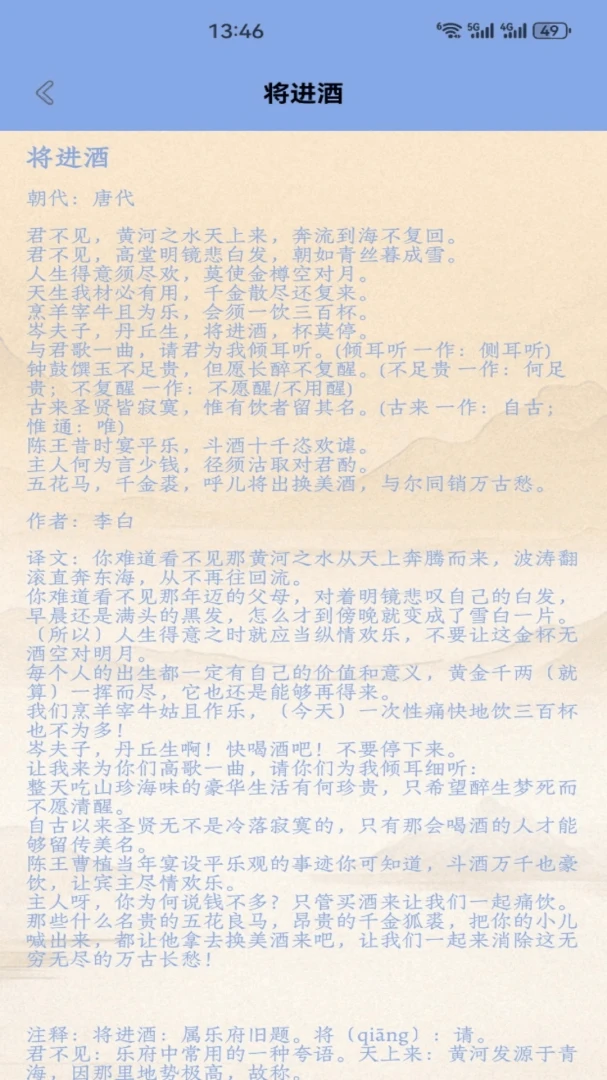 13:46
6 5G 4G 49
将进酒
将进酒
朝代：唐代
君不见，黄河之水天上来，奔流到海不复回。
君不见，高堂明镜悲白发，朝如青丝暮成雪。
人生得意须尽欢，莫使金樽空对月。
天生我材必有用，千金散尽还复来。
烹羊宰牛且为乐，会须一饮三百杯。
岑夫子，丹丘生，将进酒，杯莫停。
与君歌一曲，请君为我倾耳听。(倾耳听 一作：侧耳听)
钟鼓馔玉不足贵，但愿长醉不复醒。(不足贵 一作：何足
贵；不复醒 一作：不愿醒/不用醒)
古来圣贤皆寂寞，惟有饮者留其名。(古来 一作：自古；
惟 通：唯)
陈王昔时宴平乐，斗酒十千恣欢谑。
主人何为言少钱，径须沽取对君酌。
五花马，千金裘，呼儿将出换美酒，与尔同销万古愁。
作者：李白
译文：你难道看不见那黄河之水从天上奔腾而来，波涛翻
滚直奔东海，从不再往回流。
你难道看不见那年迈的父母，对着明镜悲叹自己的白发，
早晨还是满头的黑发，怎么才到傍晚就变成了雪白一片。
（所以）人生得意之时就应当纵情欢乐，不要让这金杯无
酒空对明月。
每个人的出生都一定有自己的价值和意义，黄金千两（就
算）一挥而尽，它也还是能够再得来。
我们烹羊宰牛姑且作乐，（今天）一次性痛快地饮三百杯
也不为多！
岑夫子，丹丘生啊！快喝酒吧！不要停下来。
让我来为你们高歌一曲，请你们为我倾耳细听：
整天吃山珍海味的豪华生活有何珍贵，只希望醉生梦死而
不愿清醒。
自古以来圣贤无不是冷落寂寞的，只有那会喝酒的人才能
够留传美名。
陈王曹植当年宴设平乐观的事迹你可知道，斗酒万千也豪
饮，让宾主尽情欢乐。
主人呀，你为何说钱不多？只管买酒来让我们一起痛饮。
那些什么名贵的五花良马，昂贵的千金狐裘，把你的小儿
喊出来，都让他拿去换美酒来吧，让我们一起来消除这无
穷无尽的万古长愁！
注释：将进酒：属乐府旧题。将（qiāng）：请。
君不见：乐府中常用的一种夸语。天上来：黄河发源于青
海，因那里地势极高，故称。